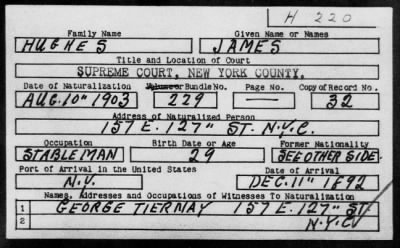 H 220
Family Name Given Name or Names
HUGHES JAMES
Title and Location of Court
SUPREME COURT, NEW YORK COUNTY.
Date of Naturalization Volume or Bundle No. Page No. Copy of Record No.
AUG. 10" 1903 229 — 32
Address of Naturalized Person
157 E. 127" ST. N.Y.C.
Occupation Birth Date or Age Former Nationality
STABLEMAN 29 SEE OTHER SIDE.
Port of Arrival in the United States Date of Arrival
N.Y. DEC. 11" 1892
Names, Addresses and Occupations of Witnesses To Naturalization
1 GEORGE TIERNAY 157 E. 127" ST.
2 N.Y.C.